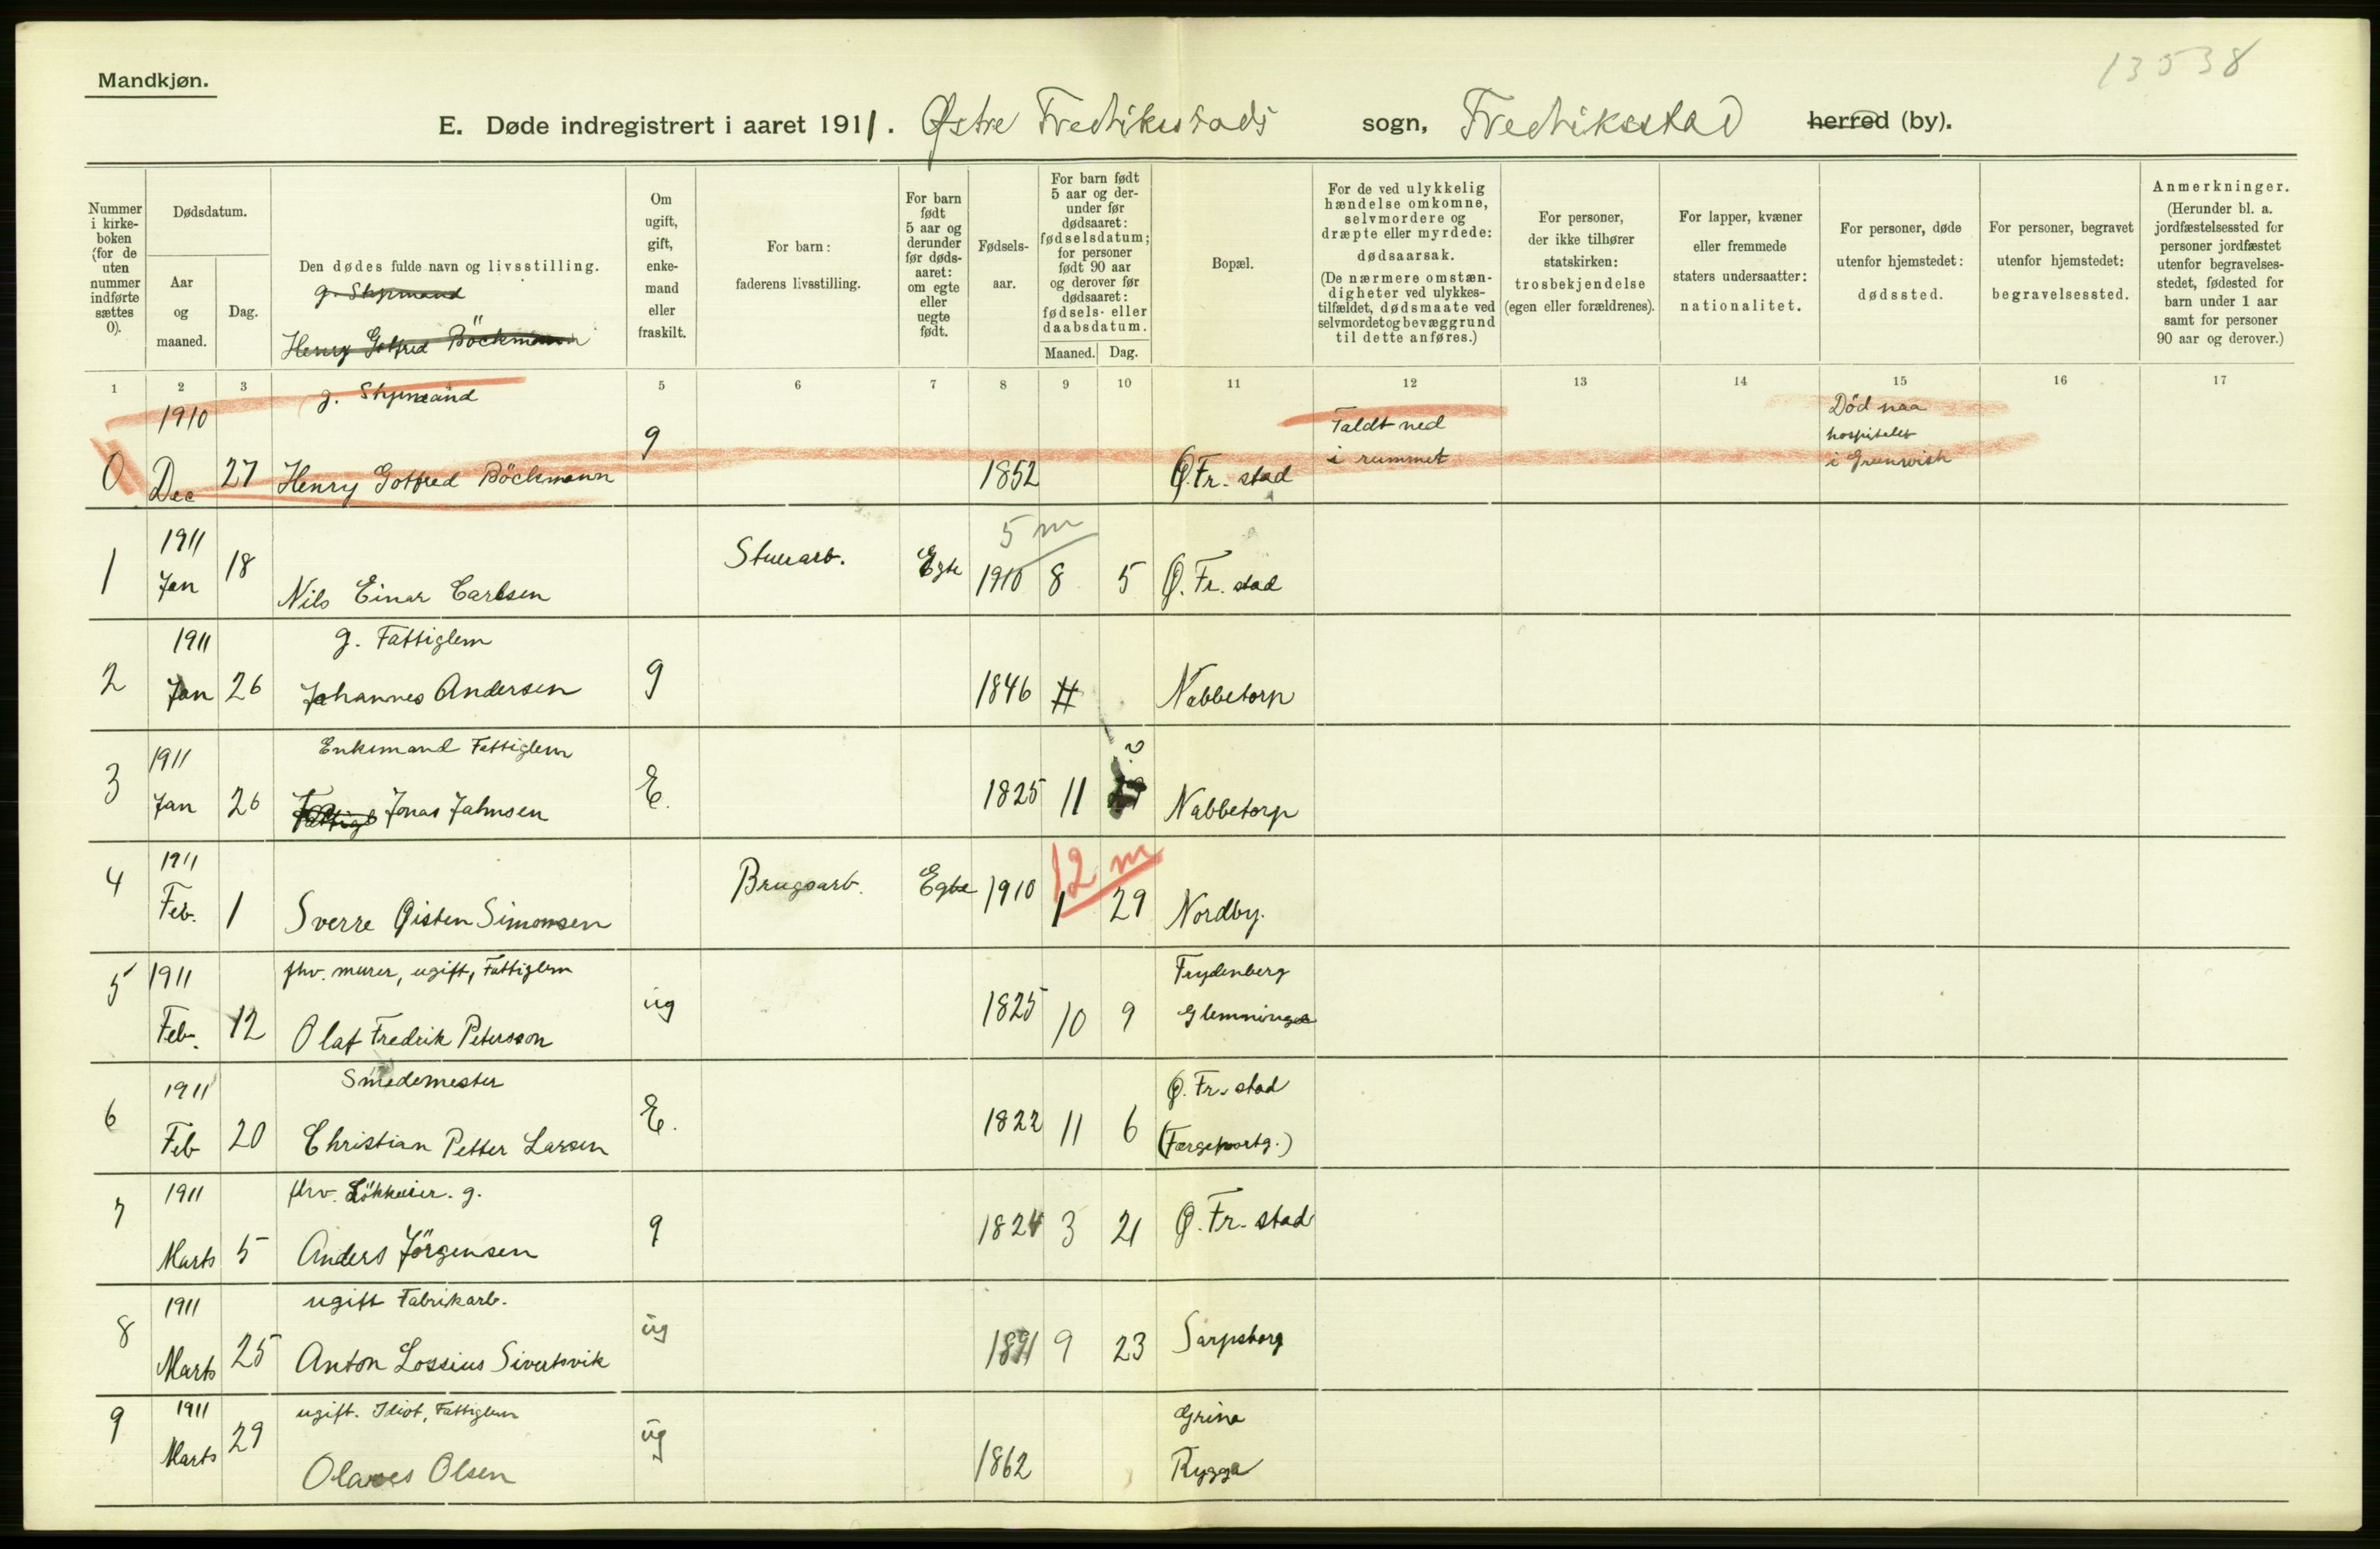 13538
Mandkjøn.
E. Døde indregistrert i aaret 1911. Østre Fredriksstads sogn, Fredriksstad herred (by).
Nummer i kirke-boken (for de uten nummer indførte sættes 0).
Dødsdatum.
Aar og maaned.
Dag.
Den dødes fulde navn og livsstilling.
g. Skipmand
Henry Gotfred Böckmann
Om ugift, gift, enke-mand eller fraskilt.
For barn: faderens livsstilling.
For barn født 5 aar og derunder før døds-aaret: om egte eller uegte født.
Fødsels-aar.
For barn født 5 aar og der-under før dødsaaret: fødselsdatum; for personer født 90 aar og derover før dødsaaret: fødsels- eller daabsdatum.
Maaned. Dag.
Bopæl.
For de ved ulykkelig hændelse omkomne, selvmordere og dræpte eller myrdede: dødsaarsak.
(De nærmere omstæn-digheter ved ulykkes-tilfældet, dødsmaate ved selvmordet og bevæggrund til dette anføres.)
For personer, der ikke tilhører statskirken: trosbekjendelse (egen eller forældrenes).
For lapper, kvæner eller fremmede staters undersaatter: nationalitet.
For personer, døde utenfor hjemstedet: dødssted.
For personer, begravet utenfor hjemstedet: begravelsessted.
Anmerkninger.
(Herunder bl. a. jordfæstelsessted for personer jordfæstet utenfor begravelses-stedet, fødested for barn under 1 aar samt for personer 90 aar og derover.)
1 2 3 4 5 6 7 8 9 10 11 12 13 14 15 16 17
1910 g. Skipmand Faldt ned Død paa
hospitalet
0 Dec 27 Henry Gotfred Böckmann g 1852 Ø. Fr. stad i rummet i Grunwish
1911 5 m
1 Jan 18 Nils Einar Carlsen Stuerarb. Egte 1910 8 5 Ø. Fr. stad
1911 g. Fattiglem
2 Jan 26 Johannes Andersen g 1846 Nabbetorp
1911 Enkemand Fattiglem
3 Jan 26 Fattigl Jonas Jahnsen E. 1825 11 Nabbetorp
1911 12 m
4 Feb. 1 Sverre Øisten Simonsen Brugsarb. Egte 1910 1 29 Nordby.
1911 fhv. murer, ugift, Fattiglem Frydenberg
5 Feb. 12 Olaf Fredrik Petersson ug 1825 10 9 Glemminge
1911 Smedemester Ø. Fr. stad
6 Feb 20 Christian Petter Larsen E. 1822 11 6 (Færgeportg.)
1911 fhv. Løkkeeier. g.
7 Marts 5 Anders Jörgensen g 1824 3 21 Ø. Fr. stad
1911 ugift Fabrikarb.
8 Marts 25 Anton Lossius Sivertsvik ug 1891 9 23 Sarpsborg
1911 ugift. Idiot, Fattiglem Grina
9 Marts 29 Olaves Olsen ug 1862 Rygge